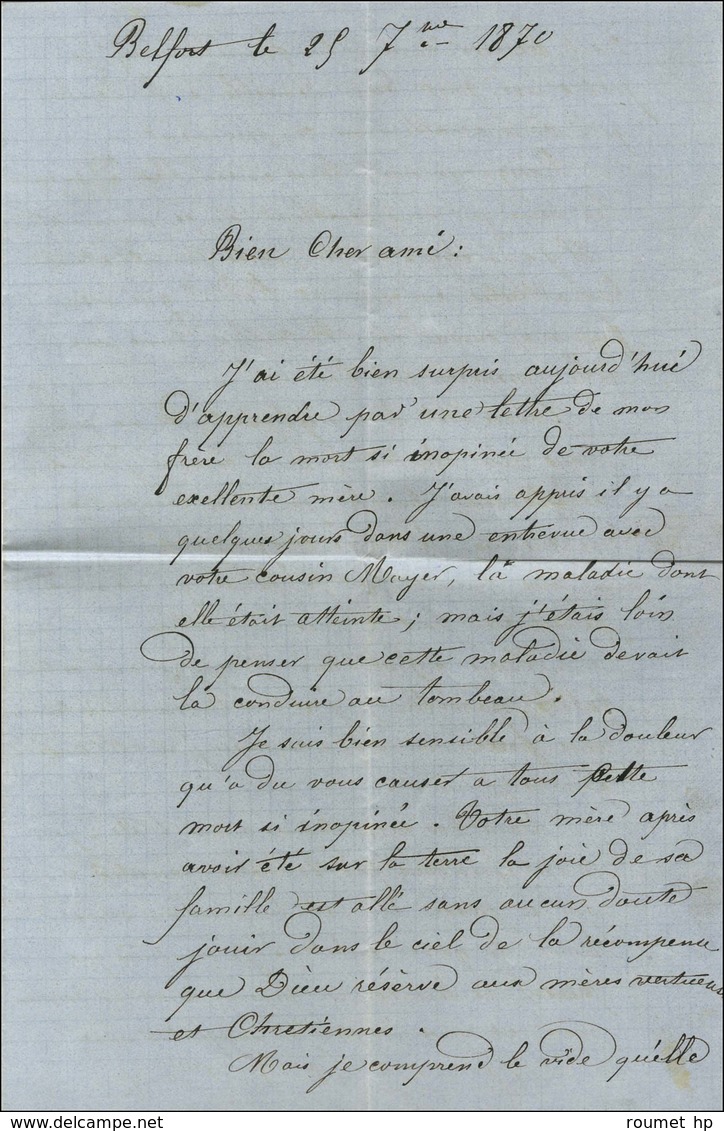 Belfort le 25 7me 1870
Bien Cher amé :
J'ai été bien surpris aujourd'hué
d'apprendre par une lettre de mon
frère la mort si inopinée de votre
exellente mère. J'avais appris il y a
quelques jours dans une entrevue avec
votre cousin Mayer, la maladie dont
elle était atteinte ; mais j'étais loin
de penser que cette maladie devait
la conduire au tombeau.
Je suis bien sensible à la douleur
qu'a du vous causer a tous cette
mort si inopinée. Votre mère après
avoir été sur la terre la joie de sa
famille est allé sans aucun doute
jouir dans le ciel de la récompense
que Dieu réserve aux mères vertueuse
et Chretiennes.
Mais je comprend le vide qu'elle
www.delcampe.net
roumet hp